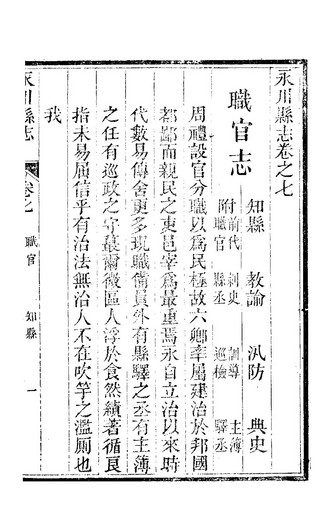 永川縣志卷之七
職官志
知縣 教諭 汛防 典史
附前代職官 刺史 訓導 主簿
縣丞 巡檢 驛丞
周禮設官分職以爲民極故六卿率屬建治於邦國
都鄙而親民之吏邑宰爲最重焉永自立治以來時
代數易傳舍更多現職備員外有縣驛之丞有主簿
之任有巡政之守蕞爾微區人浮於食然績著循良
指未易屈信乎有治法無治人不在吹竽之濫厠也
我
永川縣志
卷七
職官
知縣
一